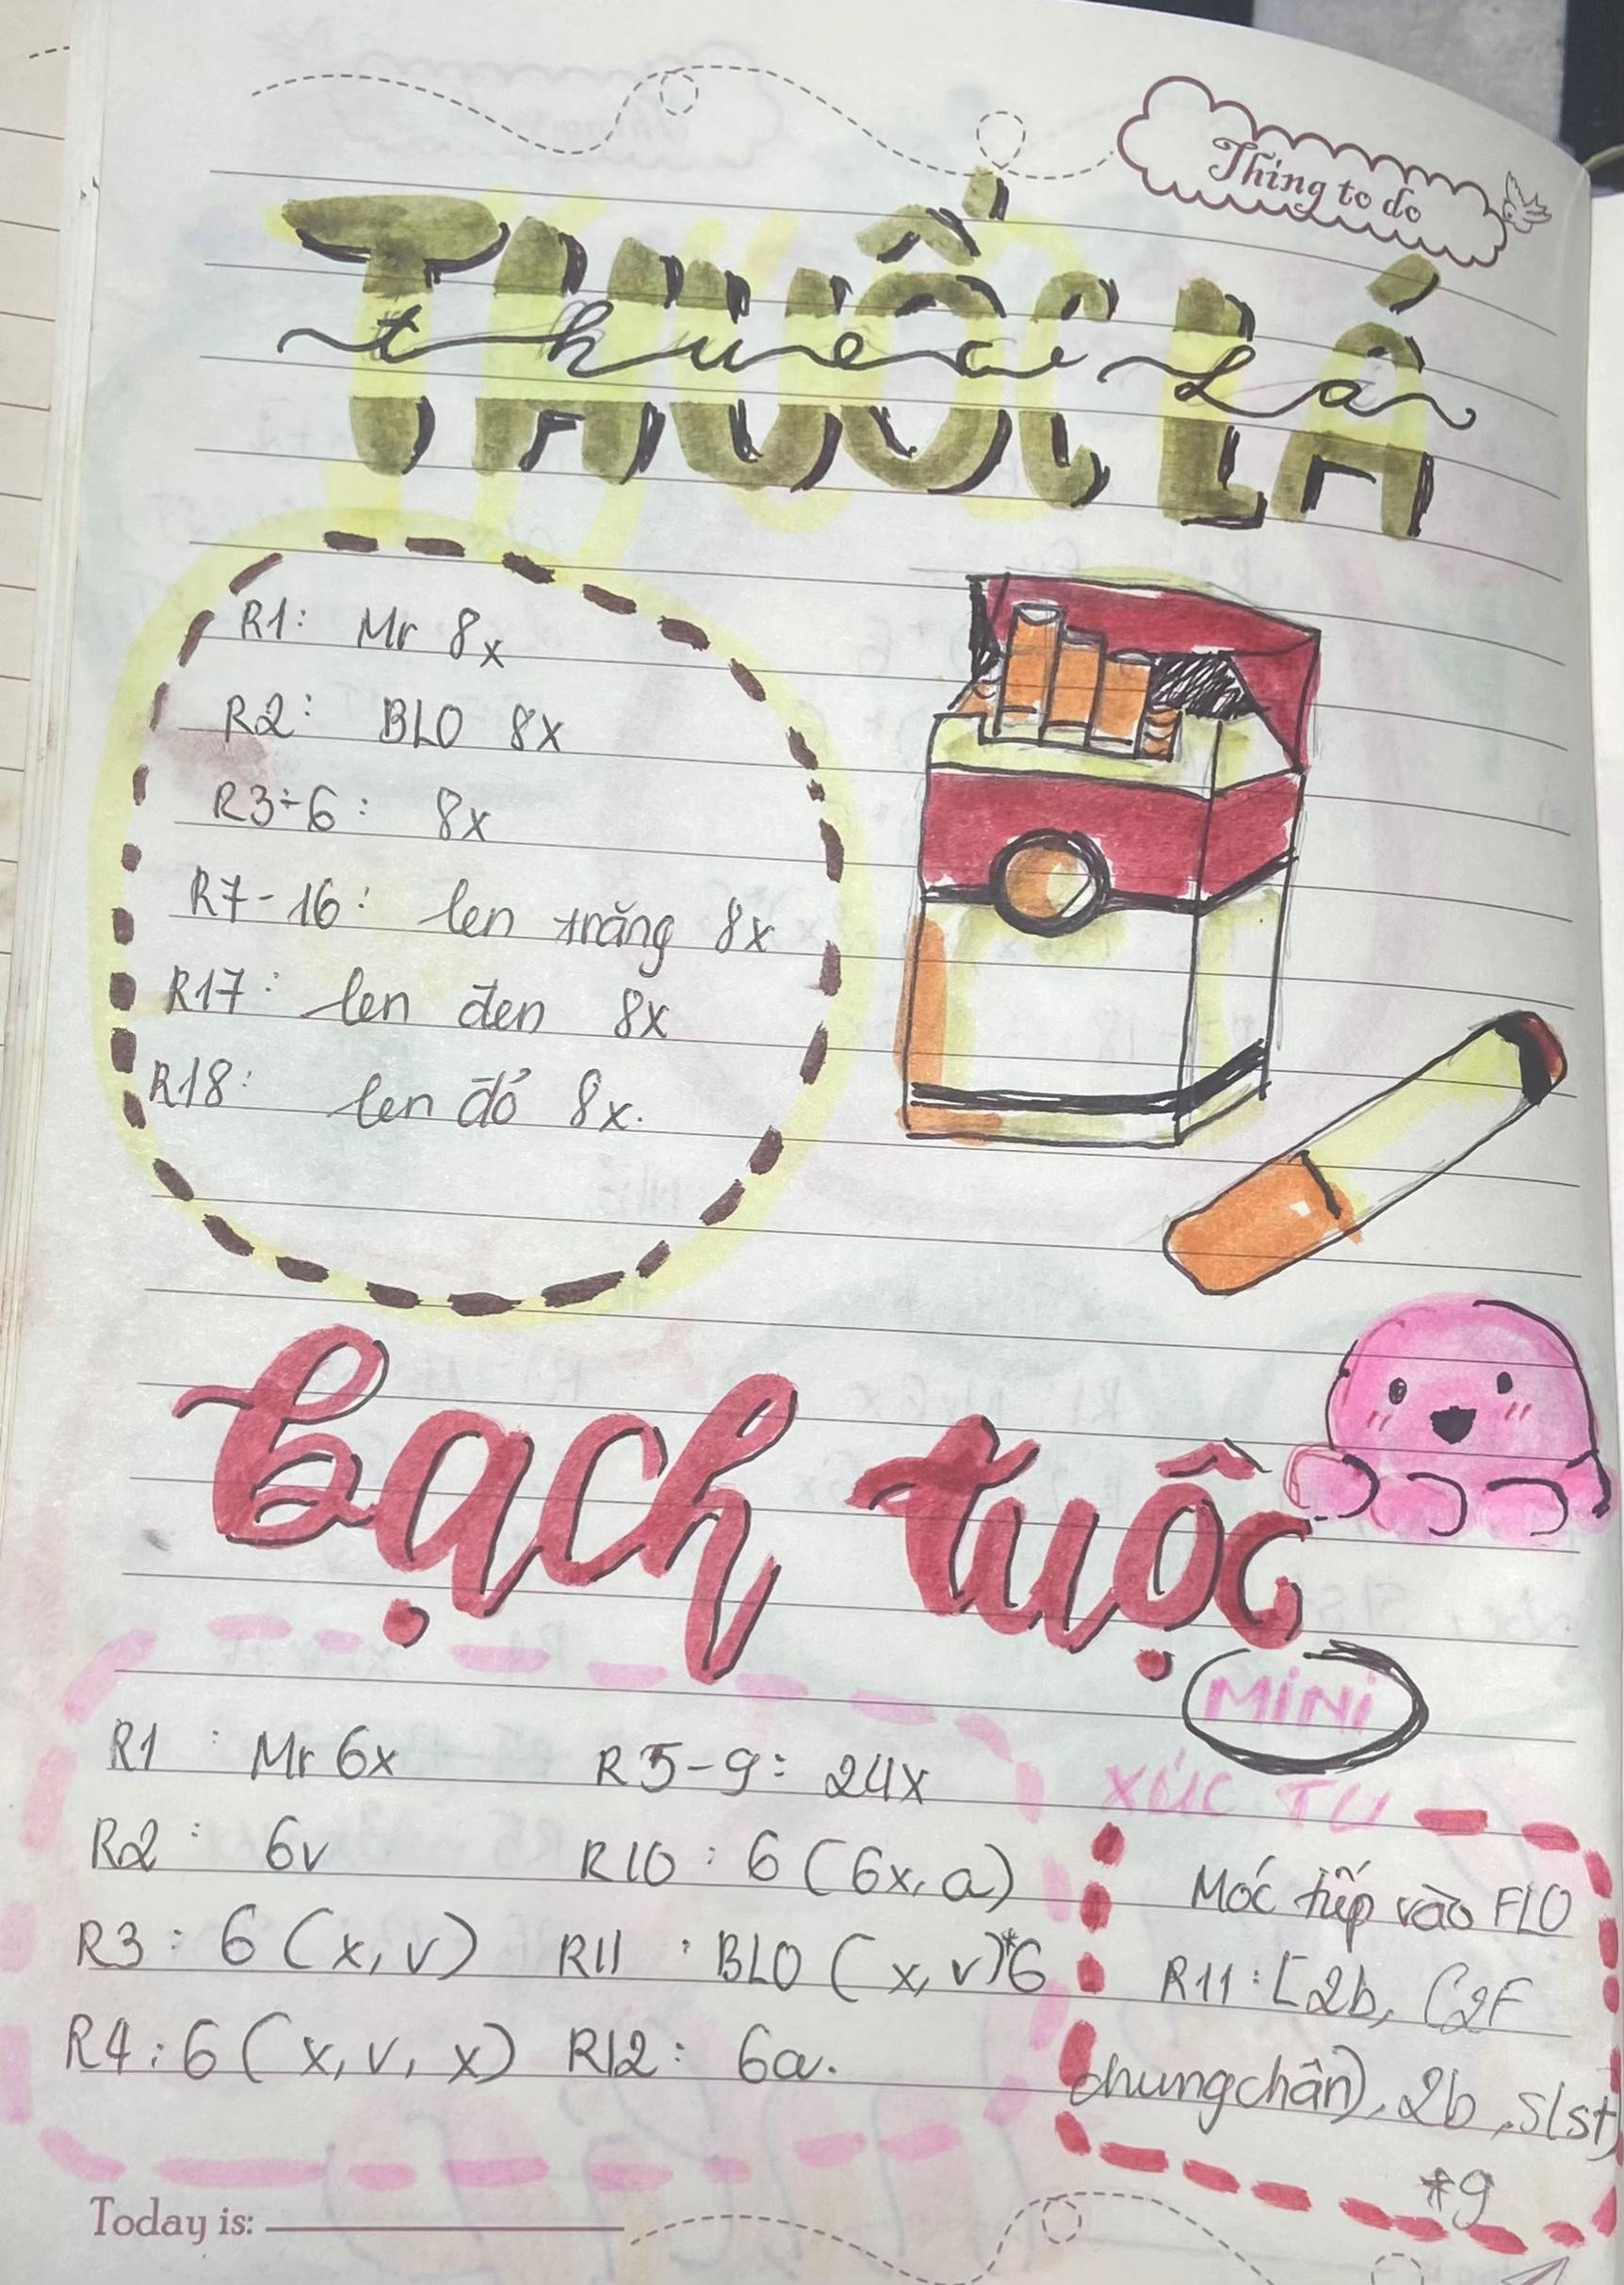 Thing to do
THUỐC LÁ
thuoc la
R1: Mr 8x
R2: BLO 8x
R3÷6: 8x
R7-16: len trăng 8x
R17: len đen 8x
R18: len đỏ 8x.
bạch tuộc
MiNi
R1 : Mr 6x
R2 : 6v
R3 : 6 (x, v)
R4 : 6 (x, v, x)
R5-9 : 24x
R10 : 6 (6x, a)
R11 : BLO (x, v)*6
R12 : 6a.
XÚC TU
Móc tiếp vào FLO
R11 : [2b, (2F
chungchân), 2b, slst]
*9
Today is: